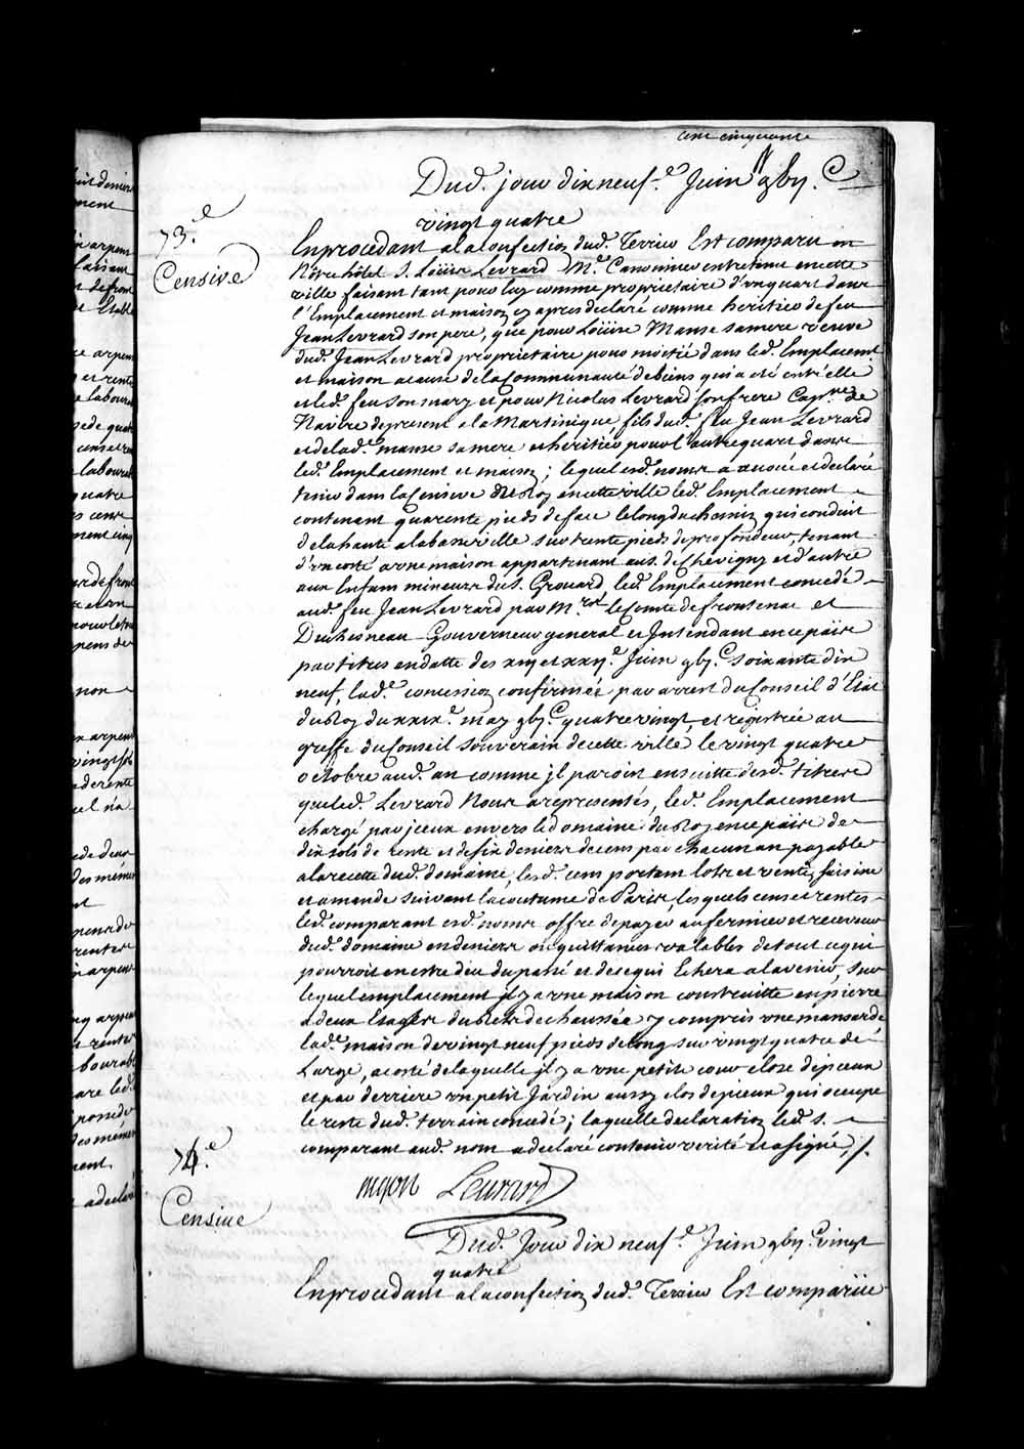 cent cinquante
Dud. jour dixneuf.e Juin gbij.C
vingt quatre
73.e
Censive
En procedant a la confection dud. Terrier Est comparu en
Nôtre hôtel S. Loüis Levrard M.e Canonnier entretenu en cette
ville faisant tant pour luy comme proprietaire d'un quart dans
l'Emplacement et maison cy apres declaré comme heritier de feu
Jean Levrard son pere, que pour Loüise Manse sa mere veuve
dud. Jean Levrard proprietaire pour moitié dans led. Emplacemt
et maison acause de la Communauté de biens qui a eté entr'elle
et led. feu son mary et pour Nicolas Levrard son frere Cap.ne de
Navire de present a la Martinique, fils dud. feu Jean Levrard
et de lad.e manse sa mere et heritier pour l'autre quart dans
led. Emplacement et maison; lequel esd. noms a avoüé et declaré
tenir dans la Censive du Roy en cette ville led. Emplacement
contenant quarente pieds de face le long du chemin qui conduit
de la haute a la basse ville sur trente pieds de profondeur, tenant
d'un coté a une maison appartenant au S. de Chevigny et d'autre
aux Enfans mineurs du S. Grouard led. Emplacement concedé
aud. feu Jean Levrard par M.rs le Comte de frontenac et
Duchesneau Gouverneur general et Intendant en ce païs
par titres en datte des et Juin gbij.C soixante dix
neuf, lad.e concession confirmée par arrest du Conseil d'Etat
du Roy du xxix.e may gbij.C quatrevingt, et registrée au
greffe du Conseil Souverain de cette ville le vingt quatre
octobre aud. an comme jl paroist ensuitte desd. titres
que led. Levrard Nous a representés, led. Emplacement
chargé par jceux envers le domaine du Roy en ce païs de
dix sols de rente et de six deniers de cens par chacun an payable
a la recette dud. domaine, lesd. cens portant lots et ventes, saisine
et amende suivant la coutume de Paris lesquels cens et rentes
led. comparant esd. noms offre de payer au fermier et receveur
dud. domaine en deniers ou quittances valables de tout ce qui
pourroit en estre deu du passé et de ce qui Echera a l'avenir, sur
lequel emplacement jl y a une maison construitte en pierre
a deux Etages du Rets de chaussée y compris une mansarde
lad.e maison de vingt neuf pieds de long sur vingt quatre de
Large, a coté de laquelle jl y a une petite cour close de pieux
et par derriere un petit Jardin aussy clos de pieux qui occupe
le reste dud. terrain concedé; laquelle declaration led. S.
comparant aud. nom a declaré contenir verité et a signé ./.
Levrard
74.e
Censive
Dud. Jour dix neuf.e Juin gbij.C vingt
quatre
En procedant a la confection dud. Terrier Est comparüe